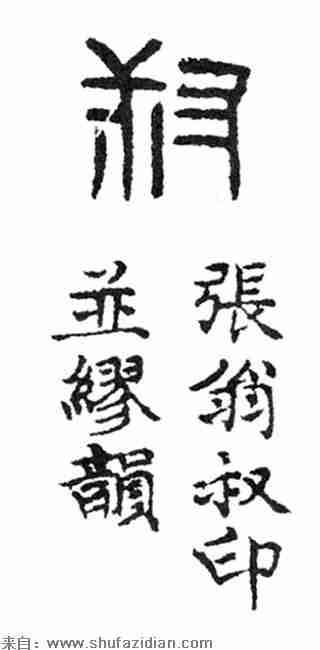 叔
張翁叔印
並繆韻
来自：www.shufazidian.com